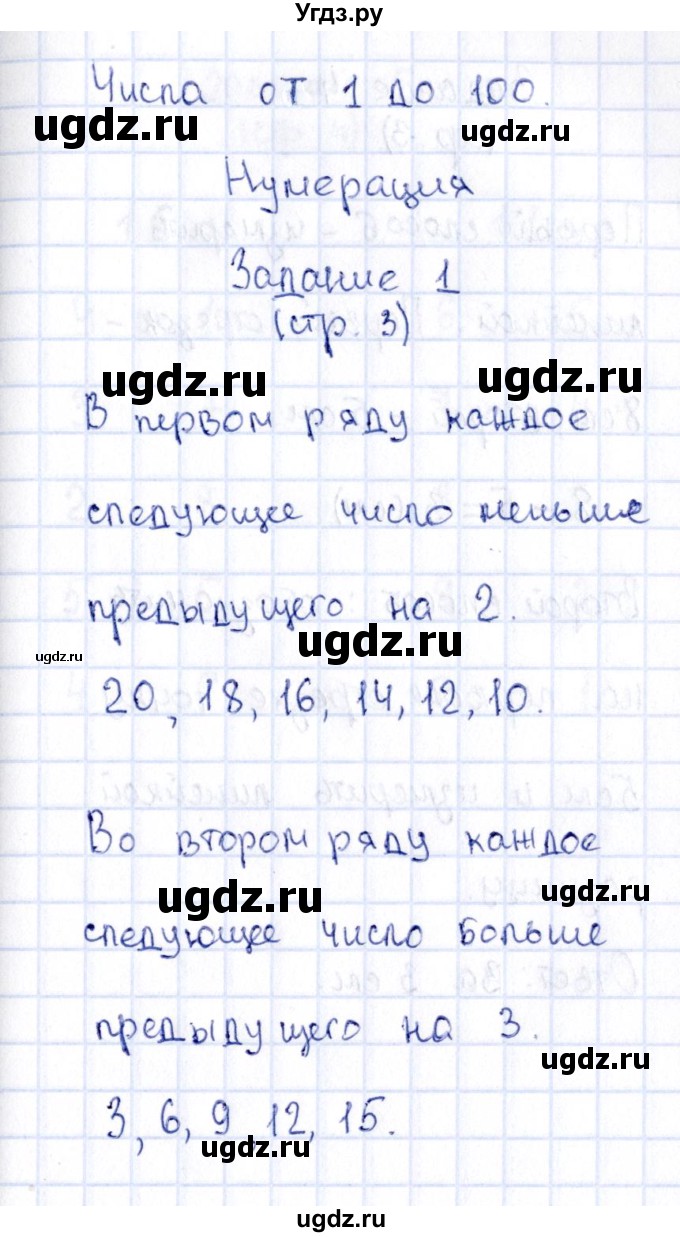 Угдз.ру
Числа от 1 до 100.
ugdz.ru ugdz.ru
Нумерация
Задание 1
(стр. 3)
ugdz.ru ugdz.ru
В первом ряду каждое
следующее число меньше
предыдущего на 2.
ugdz.ru ugdz.ru
20, 18, 16, 14, 12, 10.
Во втором ряду каждое
ugdz.ru ugdz.ru
следующее число больше
предыдущего на 3.
ugdz.ru
3, 6, 9, 12, 15.
ugdz.ru
ugdz.ru